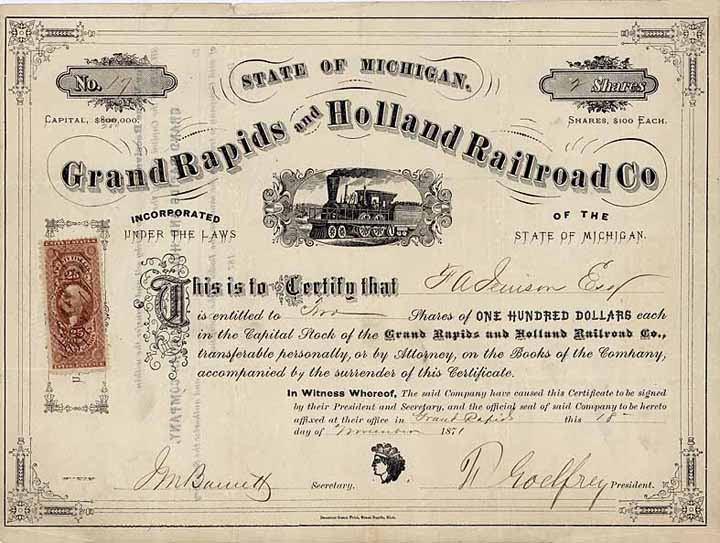 STATE OF MICHIGAN.
No. 17
Shares
CAPITAL, $800,000.
SHARES, $100 EACH.
Grand Rapids and Holland Railroad Co
INCORPORATED
UNDER THE LAWS
OF THE
STATE OF MICHIGAN.
25
This is to Certify that F A Jenison Esq
is entitled to Two Shares of ONE HUNDRED DOLLARS each
in the Capital Stock of the Grand Rapids and Holland Railroad Co.,
transferable personally, or by Attorney, on the Books of the Company,
accompanied by the surrender of this Certificate.
In Witness Whereof, The said Company have caused this Certificate to be signed
by their President and Secretary, and the official seal of said Company to be hereto
affixed at their office in Grand Rapids this 18
day of November 1871
Secretary.
Godfrey President.